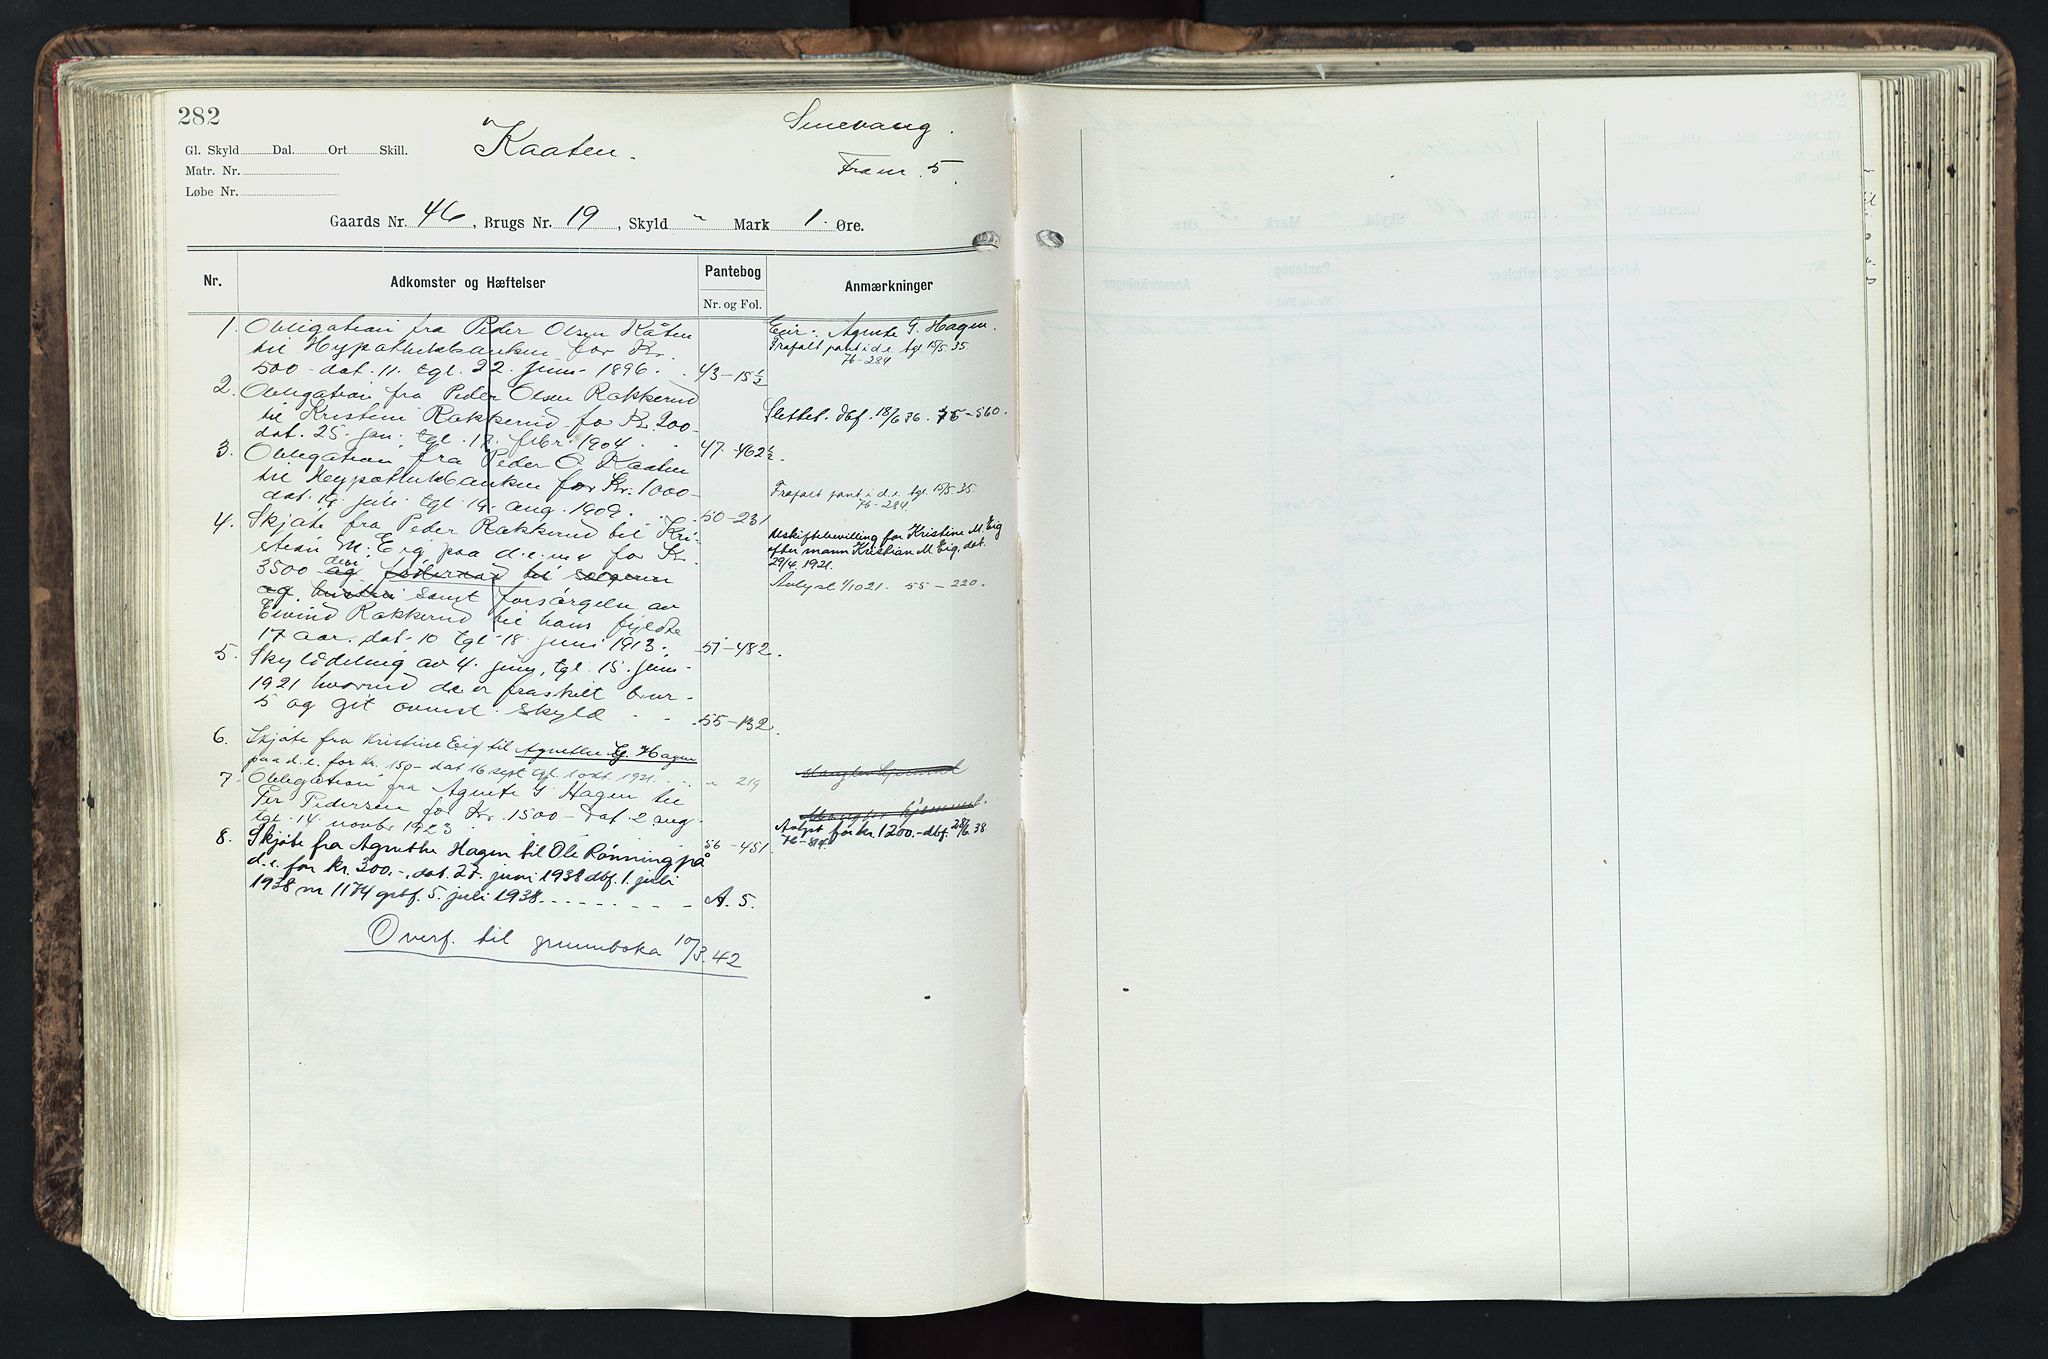 282
Kaaten.
Fram. 5.
Gl. Skyld Dal. Ort Skill.
Matr. Nr.
Løbe Nr.
Gaards Nr. 46, Brugs Nr. 19, Skyld " Mark 1. Øre.
Nr. Adkomster og Hæftelser Pantebog Anmærkninger
Nr. og Fol.
1. Obligation fra Peder Olsen Kåten
til Hypothekbanken for Kr.
500 - dat. 11. tgl. 22. juni 1896. 43-15½
Eier: Agnete G. Hagen.
Frafalt pant i d.e. tgl. 15/5.35.
76-284
2. Obligation fra Peder Olsen Rakkerud
til Kristine Rakkerud for Kr. 200-
dat. 25. jan. tgl. febr. 1904. 47-462½.
Slettet. dbf. 18/6 36. 75-560.
3. Obligation fra Peder O. Kaaten
til Hypothekbanken for Kr. 1000-
dat. 19. juli tgl. 19. aug. 1909. 50-231
Frafalt pant i d.e. tgl. 15/5.35.
76-284.
4. Skjøte fra Peder Rakkerud til Kri-
stian M. Eig paa d.e. m.v. for Kr.
3500 og føderaad til sælgeren
og hustru samt forsørgelse av
Eivind Rakkerud til hans fyldte
17 aar, dat. 10 tgl. 18. juni 1913. 51-482.
Uskiftebevilling for Kristine M. Eig
efter mann Kristian M. Eig, dat.
29/4. 1921.
Avlyst 1/10 21. 55-220.
5. Skylddeling av 4. juni, tgl. 15. juni
1921 hvorved d.e. er fraskilt b.nr.
5 og git ovenst. skyld 55-132.
6. Skjøte fra Kristine Eig til Agnethe G. Hagen
paa d.e. for kr. 150- dat 16 sept tgl. 1 okt. 1921. " 219
Mangler hjemmel
7. Obligation fra Agnete G. Hagen til
Per Pedersen for Kr. 1500- dat 2 aug.
tgl. 14. novbr 1923 56-451.
Mangler hjemmel.
Avlyst for kr. 1200.- dbf. 28/6 38
8. Skjøte fra Agnethe Hagen til Ole Rønning på
d.e. for kr. 300.-, dat. 27. juni 1938 dbf. 1. juli
1938 nr 1174 grbf. 5. juli 1938. A. 5.
Overf. til grunnboka 10/3.42